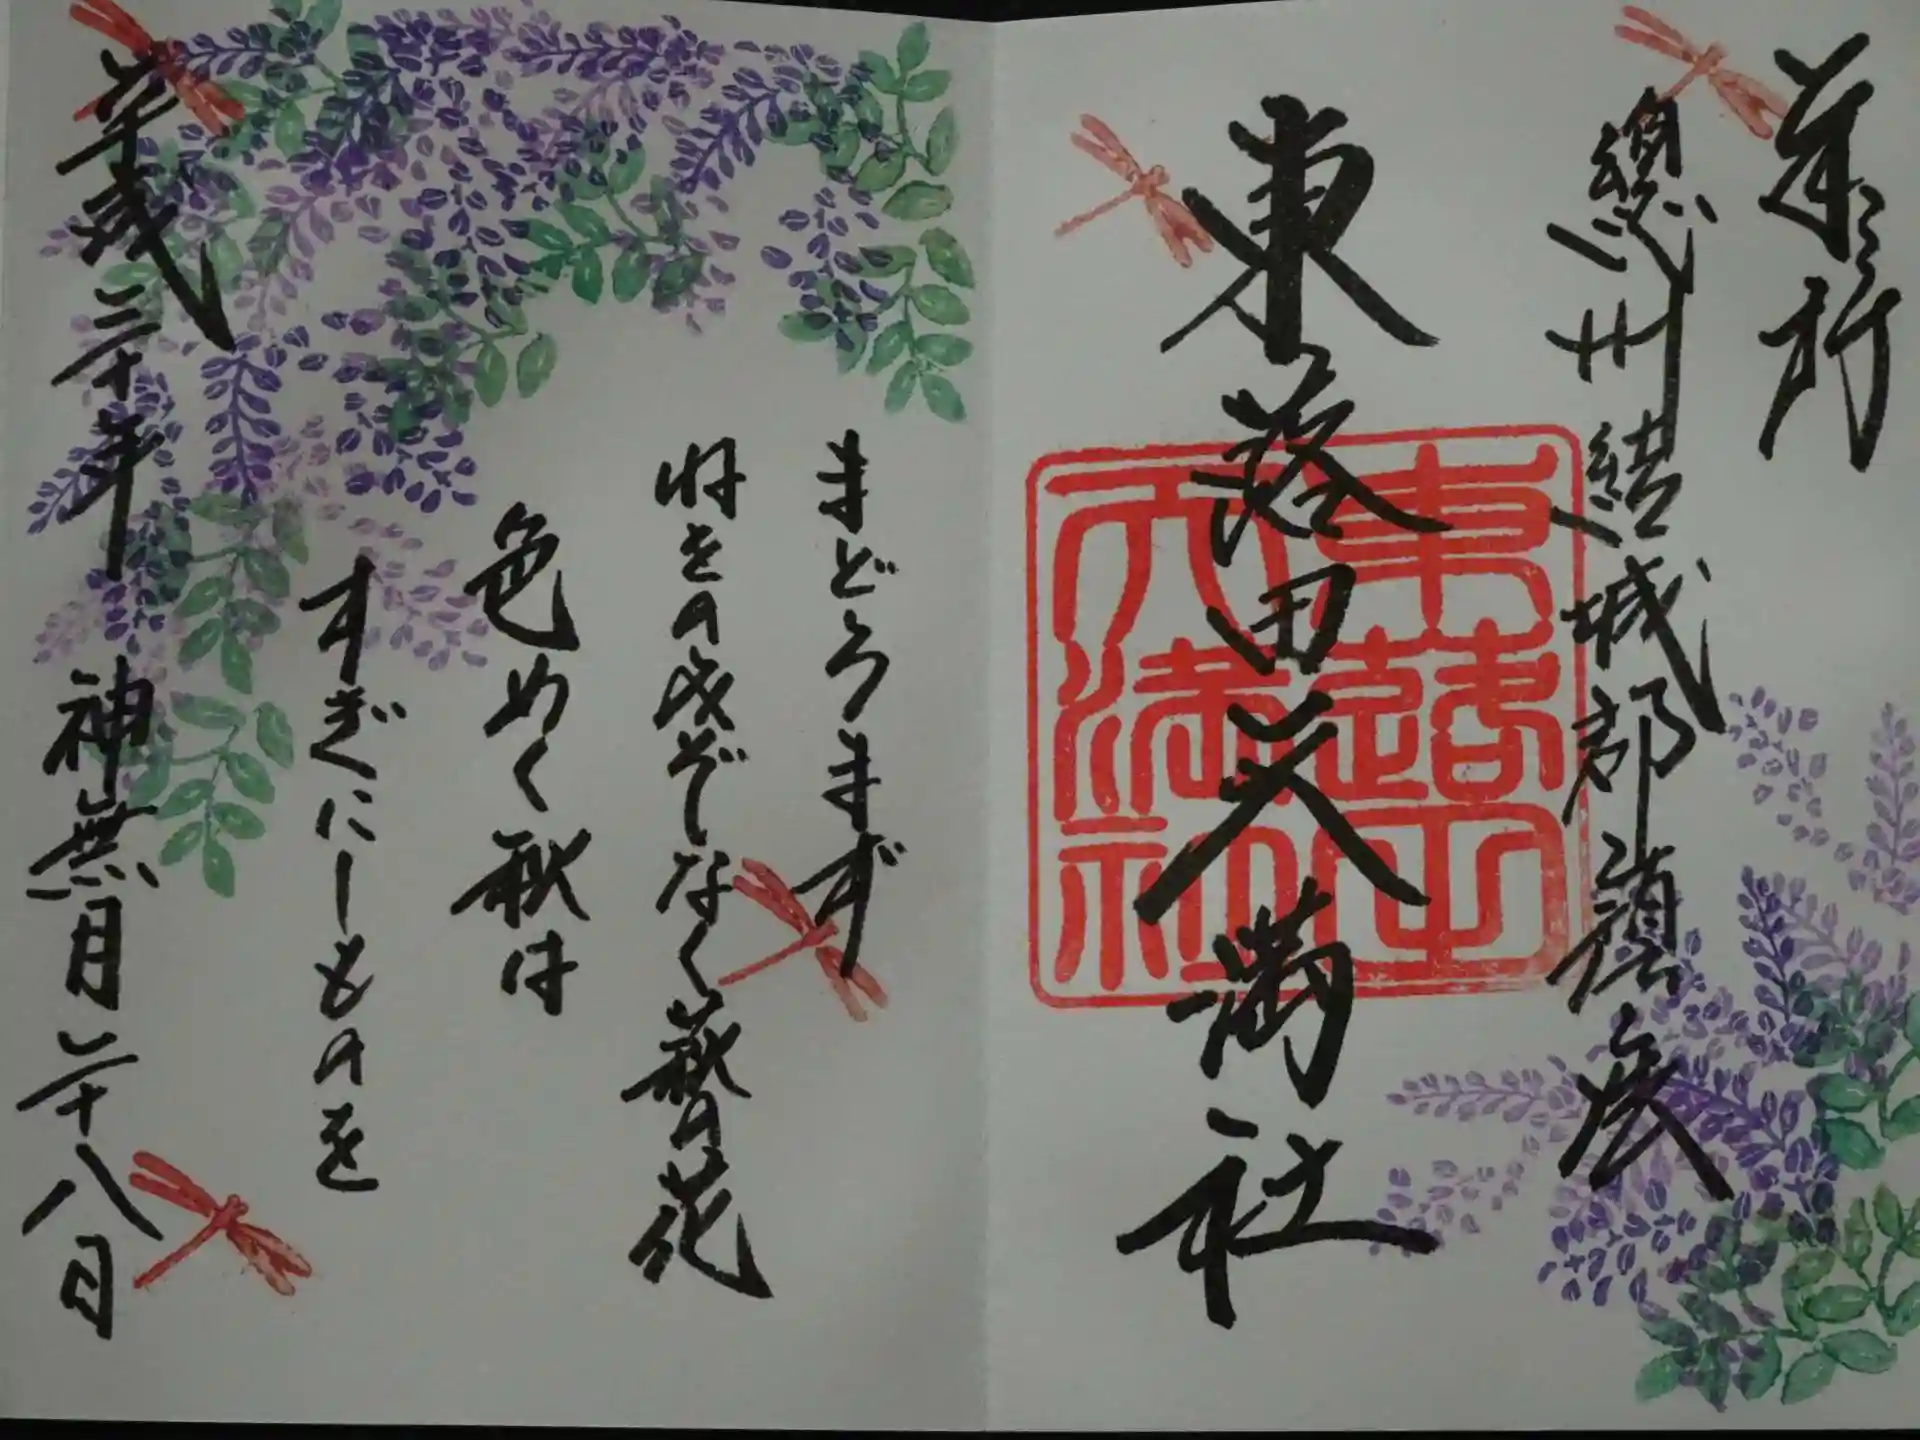 總州結城郡
東蕗田天満社
東蕗田天満社
まどろまず
ねをのみぞなく萩の花
色めく秋は
すぎにしものを
平成三十年 神無月二十八日